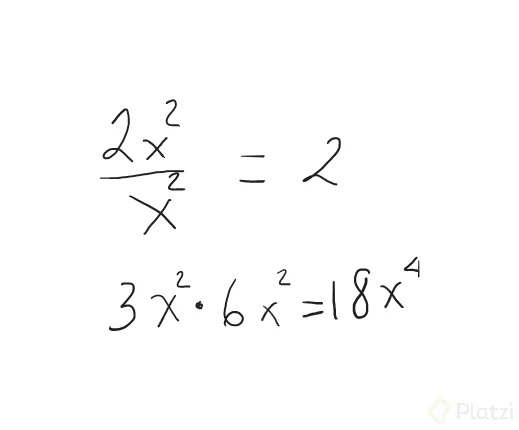 2x²/x² = 2
3x² · 6x² = 18x⁴
Platzi